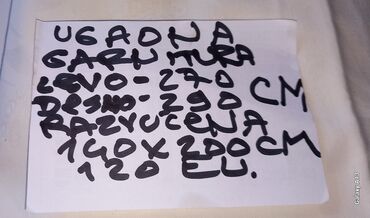 UGAONA
GARNITURA
LEVO-270
DESNO-290 CM
RAZVUCENA
140X200CM
120 EU.